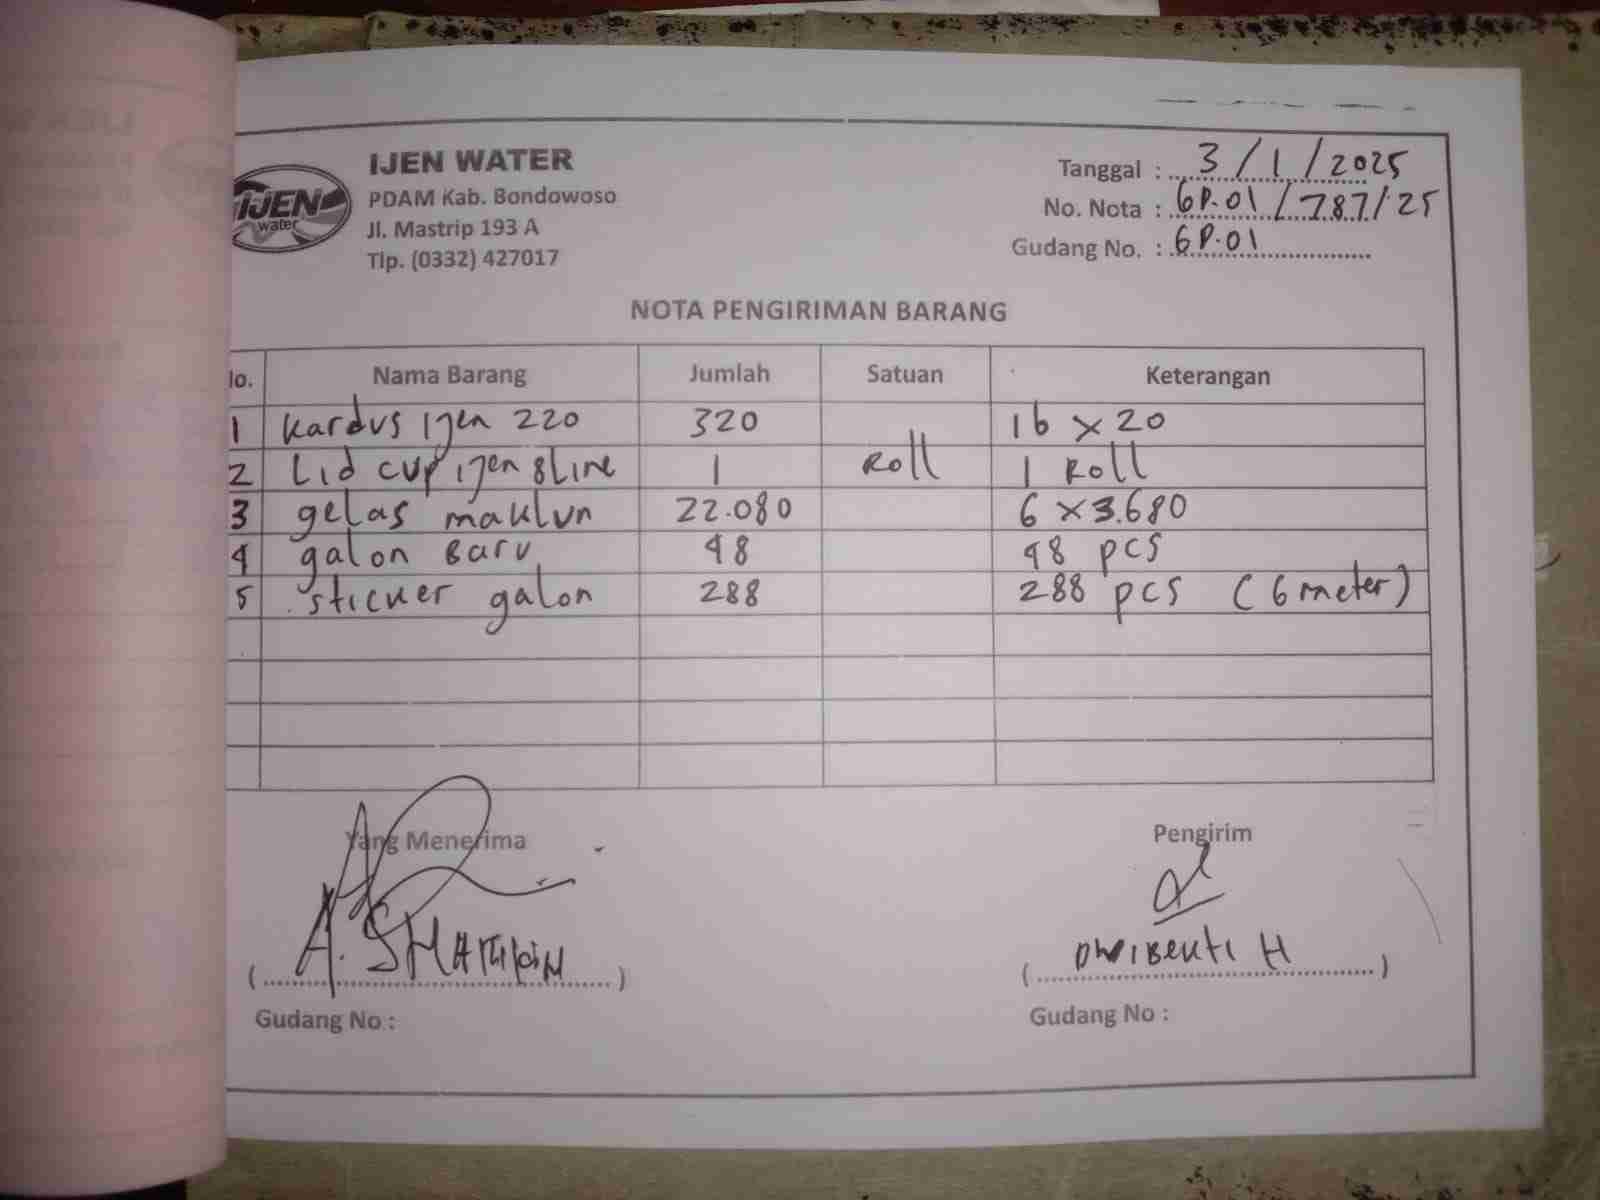 IJEN WATER
PDAM Kab. Bondowoso
Jl. Mastrip 193 A
Tlp. (0332) 427017
IJEN
water
Tanggal : 3/1/2025
No. Nota : GP.01/787/25
Gudang No. : GP.01
NOTA PENGIRIMAN BARANG
No. Nama Barang Jumlah Satuan Keterangan
1 Kardus ijen 220 320 16 x 20
2 Lid cup ijen 8line 1 Roll 1 Roll
3 gelas maklun 22.080 6 x 3.680
4 galon Baru 48 48 pcs
5 sticker galon 288 288 pcs (6 meter)
Yang Menerima Pengirim
(A.) (H)
Gudang No : Gudang No :